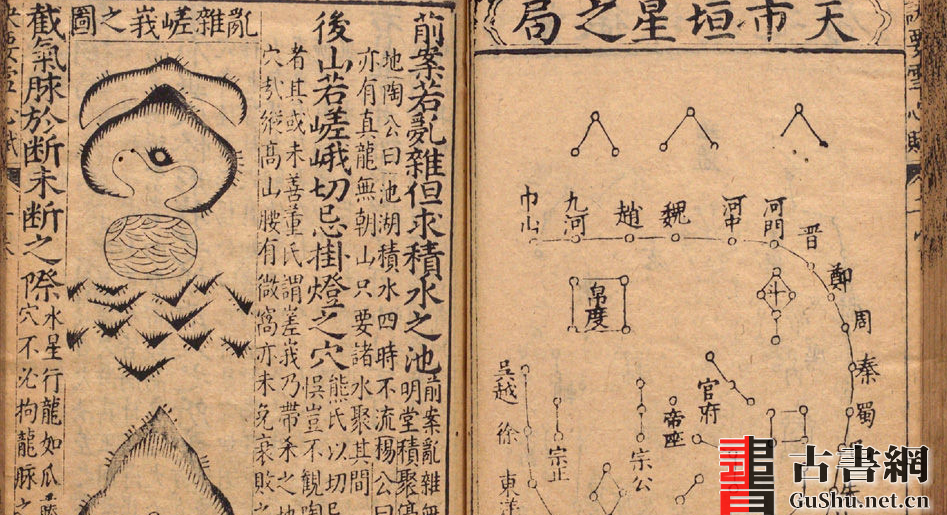 天市垣星之局
河門
河中
魏
趙
九河
巾山
晋
鄭
周
秦
蜀
斗
帛度
官府
帝座
宗公
宗正
吳越
徐
東
前案若亂雜但求積水之池
前案亂雜
明堂積聚
地陶公曰池湖積水四時不流楊公曰
亦有真龍無朝山只要諸水聚其間
後山若嵯峨切忌掛燈之穴
熊氏以切忌
悞豈不觀陶
者其或未善董氏謂嵳峩乃帶杀之地
穴哉縱高山腰有微窩亦未免衰敗
亂雜嵯峩之圖
截氣脉於断未断之際
水星行龍如瓜
穴不必拘龍脉之
古書網
GuShu.net.cn